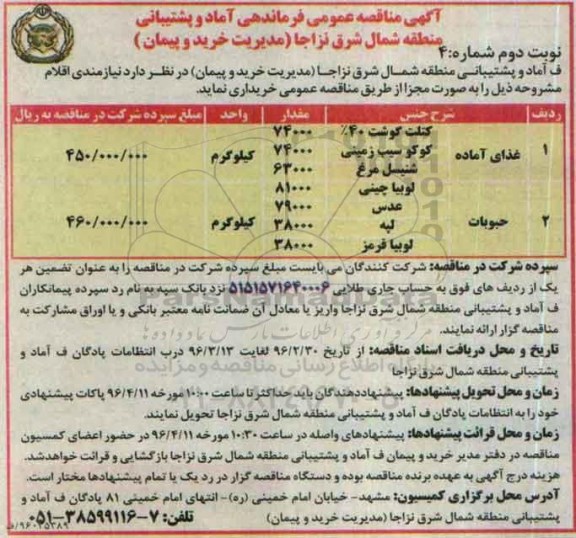 آگهی مناقصه عمومی فرماندهی آماد و پشتیبانی
منطقه شمال شرق نزاجا (مدیریت خرید و پیمان)
نوبت دوم شماره:۴
ف آماد و پشتیبانی منطقه شمال شرق نزاجا (مدیریت خرید و پیمان) در نظر دارد نیازمندی اقلام
مشروحه ذیل را به صورت مجزا از طریق مناقصه عمومی خریداری نماید.
ردیف شرح جنس مقدار واحد مبلغ سپرده شرکت در مناقصه به ریال
۱ غذای آماده کیلوگرم ۴۵۰/۰۰۰/۰۰۰
کتلت گوشت ۴۰٪ ۷۴۰۰۰
کوکو سیب زمینی ۷۴۰۰۰
شنیسل مرغ ۶۳۰۰۰
۲ حبوبات کیلوگرم ۴۶۰/۰۰۰/۰۰۰
لوبیا چینی ۸۱۰۰۰
عدس ۷۹۰۰۰
لپه ۳۸۰۰۰
لوبیا قرمز ۳۸۰۰۰
سپرده شرکت در مناقصه: شرکت کنندگان می بایست مبلغ سپرده شرکت در مناقصه را به عنوان تضمین هر
یک از ردیف های فوق به حساب جاری طلایی ۵۱۵۱۵۷۱۶۴۰۰۰۶ نزد بانک سپه به نام رد سپرده پیمانکاران
ف آماد و پشتیبانی منطقه شمال شرق نزاجا واریز یا معادل آن ضمانت نامه معتبر بانکی و یا اوراق مشارکت به
مناقصه گزار ارائه نمایند.
تاریخ و محل دریافت اسناد مناقصه: از تاریخ ۹۶/۲/۳۰ لغایت ۹۶/۳/۱۳ درب انتظامات پادگان ف آماد و
پشتیبانی منطقه شمال شرق نزاجا
زمان و محل تحویل پیشنهادها: پیشنهاددهندگان باید حداکثر تا ساعت ۱۰:۰۰ مورخه ۹۶/۴/۱۱ پاکات پیشنهادی
خود را به انتظامات پادگان ف آماد و پشتیبانی منطقه شمال شرق نزاجا تحویل نمایند.
زمان و محل قرائت پیشنهادها: پیشنهادهای واصله در ساعت ۱۰:۳۰ مورخه ۹۶/۴/۱۱ در حضور اعضای کمسیون
مناقصه در دفتر مدیر خرید و پیمان ف آماد و پشتیبانی منطقه شمال شرق نزاجا بازگشایی و قرائت خواهدشد.
هزینه درج آگهی به عهده برنده مناقصه بوده و دستگاه مناقصه گزار در رد یک یا تمام پیشنهادها مختار است.
آدرس محل برگزاری کمیسیون: مشهد- خیابان امام خمینی (ره)- انتهای امام خمینی ۸۱ پادگان ف آماد و
پشتیبانی منطقه شمال شرق نزاجا (مدیریت خرید و پیمان) تلفن: ۷-۳۸۵۹۹۱۱۶-۰۵۱